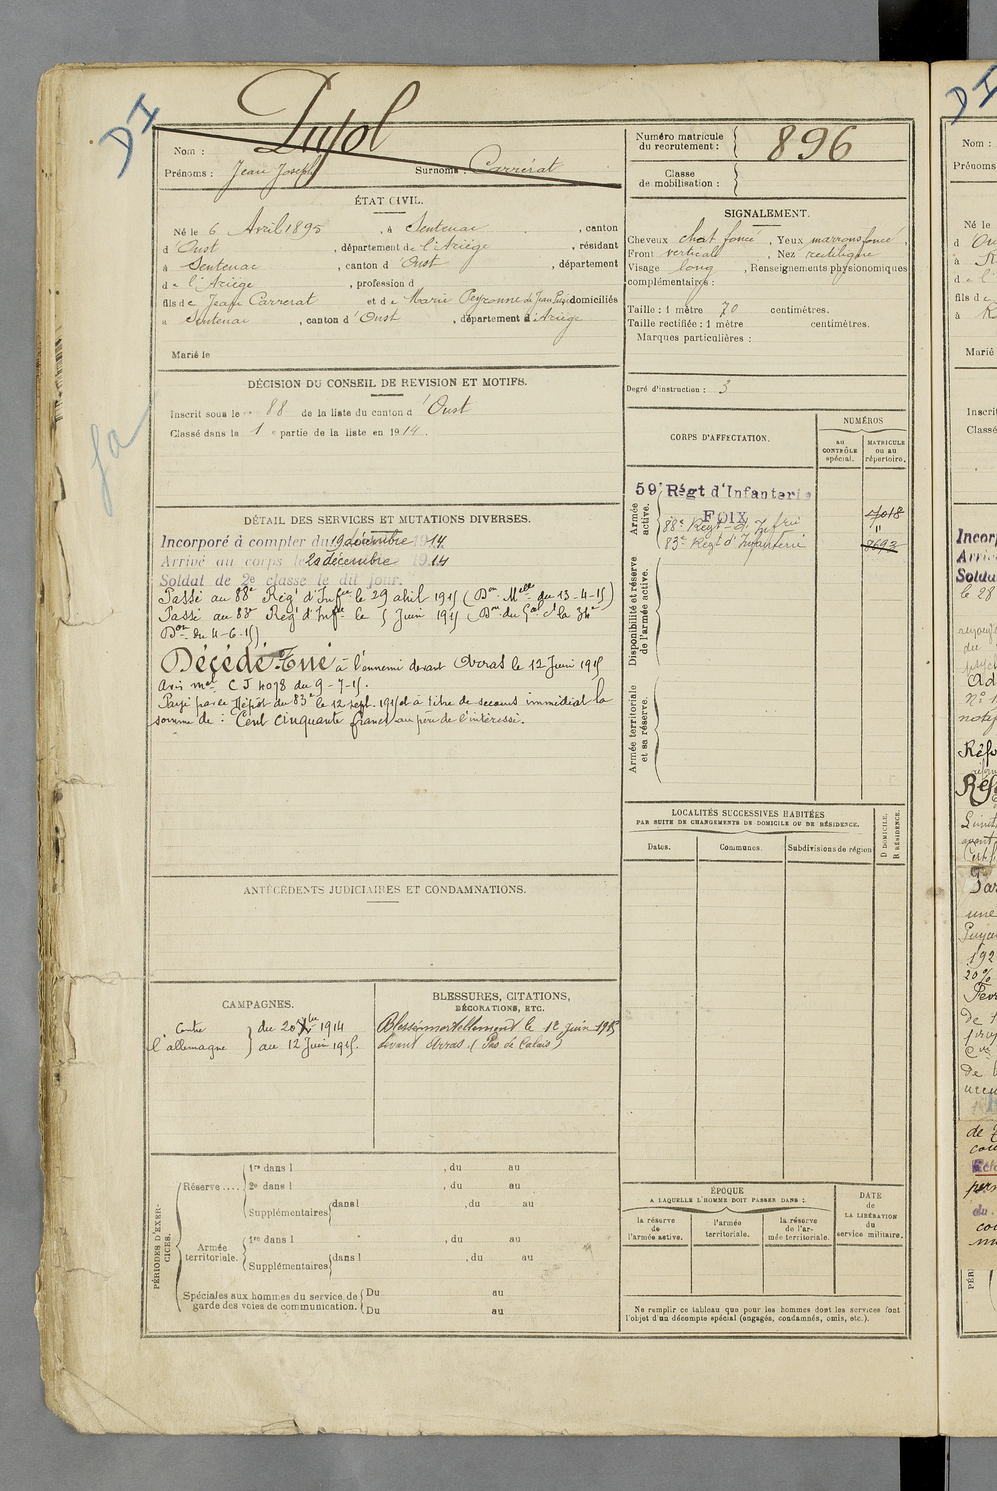 DI
Nom : Pujol
Prénoms : Jean Joseph Surnoms : Carrérat
Numéro matricule du recrutement : 896
Classe de mobilisation :
ÉTAT CIVIL.
Né le 6 Avril 1895, à Sentenac, canton
d'Oust, département de l'Ariège, résidant
à Sentenac, canton d'Oust, département
de l'Ariège, profession d
fils de Jean Carrerat et de Marie Peyronne domiciliés
à Sentenac, canton d'Oust, département d'Ariège
Marié le
SIGNALEMENT.
Cheveux chat foncé, Yeux marrons foncé
Front verticale, Nez rectiligne
Visage long, Renseignements physionomiques
complémentaires :
Taille : 1 mètre 70 centimètres.
Taille rectifiée : 1 mètre centimètres.
Marques particulières :
Degré d'instruction : 3
DÉCISION DU CONSEIL DE REVISION ET MOTIFS.
Inscrit sous le n° 88 de la liste du canton d'Oust
Classé dans la 1e partie de la liste en 1914.
CORPS D'AFFECTATION.
NUMÉROS
au CONTRÔLE spécial.
MATRICULE ou au répertoire.
Armée active.
59e Régt d'Infanterie
FOIX
88e Régt d'Infrie
83e Régt d'Infanterie
"
Disponibilité et réserve de l'armée active.
Armée territoriale et sa réserve.
DÉTAIL DES SERVICES ET MUTATIONS DIVERSES.
Incorporé à compter du 19 décembre 1914
Arrivé au corps le 20 décembre 1914
Soldat de 2e classe le dit jour.
Passé au 88e Régt d'Infrie le 29 abril 1915 (Don Melle du 13-4-15)
Passé au 83e Régt d'Infrie le 5 Juin 1915 (Don du Gal Ct la 34e
Don du 4-6-15)
Décédé Tué à l'ennemi devant Arras le 12 Juin 1915
Avis mel C J 4078 du 9-7-15.
Payé par le Dépôt du 83e le 12 sept. 1915 et à titre de secours immédiat la
somme de : Cent cinquante francs au père de l'intéressé.
LOCALITÉS SUCCESSIVES HABITÉES
PAR SUITE DE CHANGEMENTS DE DOMICILE OU DE RÉSIDENCE.
Dates.
Communes.
Subdivisions de région
D DOMICILE.
R RÉSIDENCE.
ANTÉCÉDENTS JUDICIAIRES ET CONDAMNATIONS.
CAMPAGNES.
Contre l'allemagne } du 20 Xbre 1914
au 12 Juin 1915.
BLESSURES, CITATIONS,
DÉCORATIONS, ETC.
Blessé mortellement le 12 juin 1915
devant Arras. (Pas de Calais)
PÉRIODES D'EXERCICES.
Réserve....
1re dans l , du au
2e dans l , du au
Supplémentaires dans l , du au
Armée territoriale.
1re dans l , du au
Supplémentaires dans l , du au
Spéciales aux hommes du service de garde des voies de communication.
Du au
Du au
ÉPOQUE
A LAQUELLE L'HOMME DOIT PASSER DANS :
la réserve de l'armée active.
l'armée territoriale.
la réserve de l'armée territoriale.
DATE de LA LIBÉRATION du service militaire.
Ne remplir ce tableau que pour les hommes dont les services font
l'objet d'un décompte spécial (engagés, condamnés, omis, etc.).